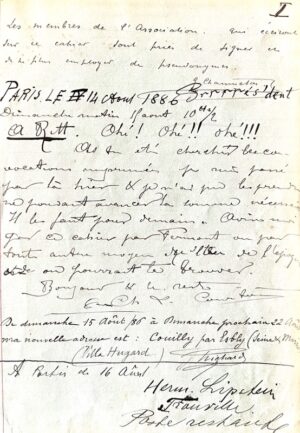 I
Les membres de l'Association qui écriront
sur ce cahier sont priés de signer et
de ne plus employer de pseudonymes.
Brrrrésident
PARIS, LE 14 Août 1886
Dimanche matin 15 août 10 h 1/2
Ohé! Ohé!! ohé!!!
As tu été chercher les con-
vocations imprimées je suis passé
par là hier & je n'ai pu les prendre
ne pouvant avancer la somme
Il les faut pour demain.
par ce cahier par ou par
tout autre moyen de
où on pourrait te trouver.
Bonjour & le reste
De dimanche 15 Août 86 à Dimanche prochain 22 Août
ma nouvelle adresse est: Couilly par Esbly (Seine & Marne
(Villa Hugard)
A Partir du 16 Août
Herm. Lipstein
Trouville
Poste restante